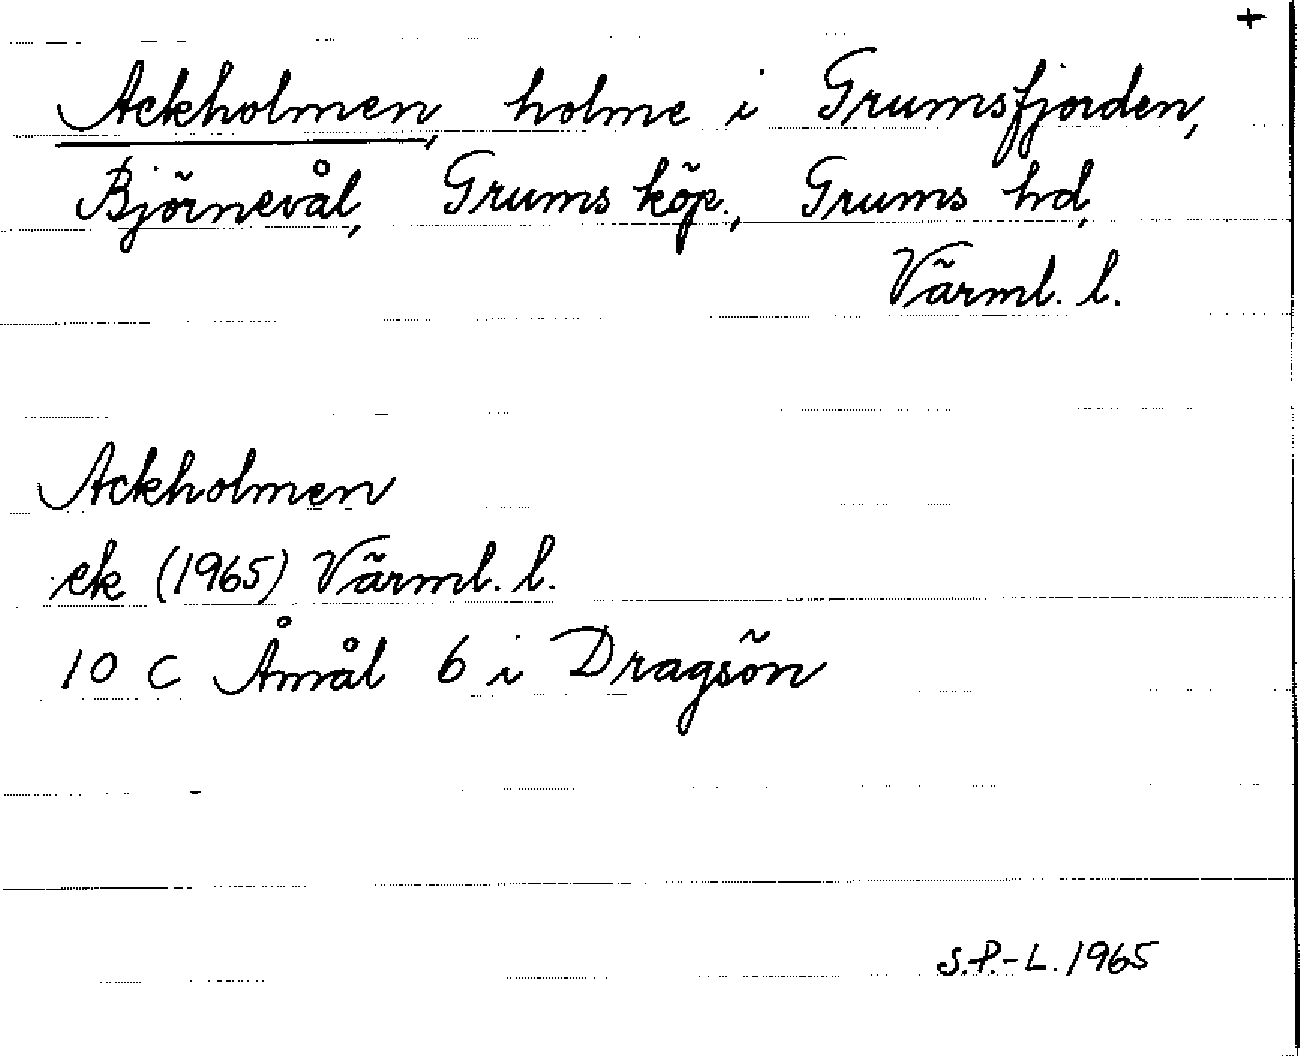 +
Ackholmen, holme i Grumsfjorden,
Björnevål, Grums köp., Grums hd,
Värml. l.
Ackholmen
ek (1965) Värml. l.
10 C Åmål 6 i Dragsön
S.P.-L. 1965